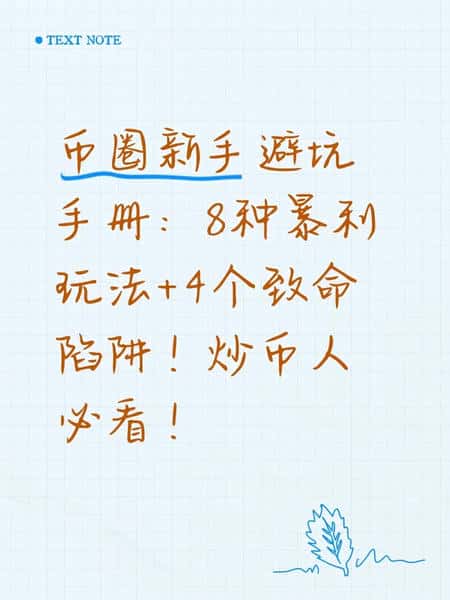 TEXT NOTE
币圈新手避坑
手册：8种暴利
玩法+4个致命
陷阱！炒币人
必看！